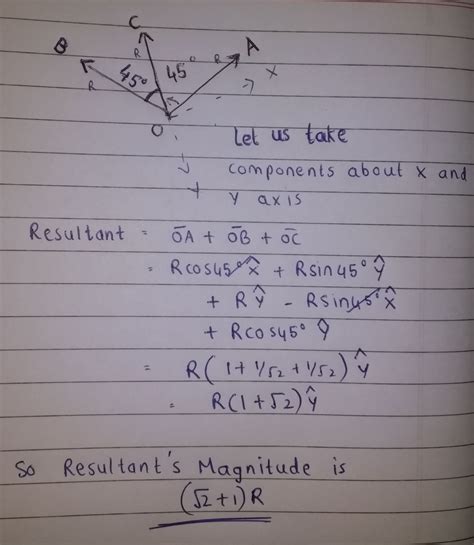 C
B
A
R
R
R
45°
45°
X
O
Y
Let us take
components about x and
y axis
Resultant = O̅A + O̅B + O̅C
= Rcos45° X̂ + Rsin45° Ŷ
+ RŶ - Rsin45° X̂
+ Rcos45° Ŷ
= R(1 + 1/√2 + 1/√2) Ŷ
= R(1+√2) Ŷ
So Resultant's Magnitude is
(√2+1)R